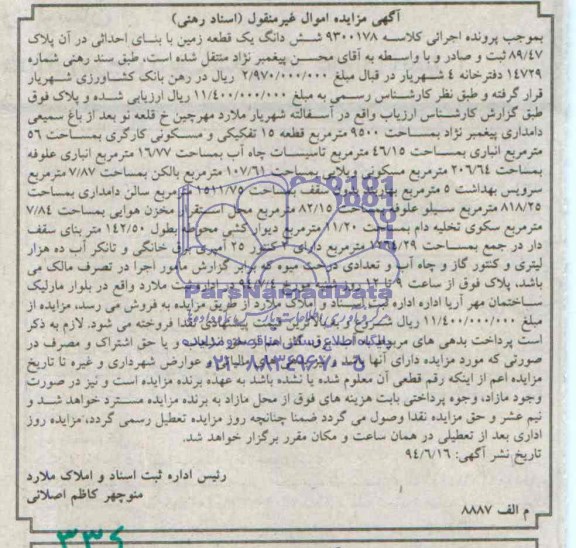 آگهی مزایده اموال غیرمنقول (اسناد رهنی)
بموجب پرونده اجرائی کلاسه ۹۳۰۰۱۷۸ شش دانگ یک قطعه زمین با بنای احداثی در آن پلاک
۸۹/۴۷ ثبت و صادر و با واسطه به آقای محسن پیغمبر نژاد منتقل شده است، طبق سند رهنی شماره
۱۴۷۲۹ دفترخانه ۴ شهریار در قبال مبلغ ۲/۹۷۰/۰۰۰/۰۰۰ ریال در رهن بانک کشاورزی شهریار
قرار گرفته و طبق نظر کارشناس رسمی به مبلغ ۱۱/۴۰۰/۰۰۰/۰۰۰ ریال ارزیابی شده و پلاک فوق
طبق گزارش کارشناس ارزیاب واقع در آسفالته شهریار ملارد مهرچین خ قلعه نو بعد از باغ سمیعی
دامداری پیغمبر نژاد بمساحت ۹۵۰۰ مترمربع قطعه ۱۵ تفکیکی و مسکونی کارگری بمساحت ۵۶
مترمربع انباری بمساحت ۴۶/۱۵ مترمربع تاسیسات چاه آب بمساحت ۱۶/۷۷ مترمربع انباری علوفه
بمساحت ۲۰۶/۶۴ مترمربع مسکونی ویلایی بمساحت ۱۰۷/۶۱ مترمربع بالکن بمساحت ۷/۸۷ مترمربع
سرویس بهداشت ۵ مترمربع بهاربند بدون سقف بمساحت ۱۵۱۱/۷۵ مترمربع سالن دامداری بمساحت
۸۱۸/۲۵ مترمربع سیلو علوفه بمساحت ۸۲/۱۵ مترمربع محل استقرار مخزن هوایی بمساحت ۷/۸۴
مترمربع سکوی تخلیه دام بمساحت ۱۱/۲۰ مترمربع دیوار کشی محوطه بطول ۱۴۲/۵۰ متر بنای سقف
دار در جمع بمساحت ۱۲۶۴/۲۹ مترمربع دارای ۲ کنتور ۲۵ آمپری برق خانگی و تانکر آب ده هزار
لیتری و کنتور گاز و چاه آب و تعدادی درخت میوه که برابر گزارش مامور اجرا در تصرف مالک می
باشد. پلاک فوق از ساعت ۹ تا ۱۲ روز شنبه مورخ ۹۴/۷/۴ در اداره ثبت ملارد واقع در بلوار مارلیک
ساختمان مهر آریا اداره اجرا ثبت اسناد و املاک ملارد از طریق مزایده به فروش می رسد، مزایده از
مبلغ ۱۱/۴۰۰/۰۰۰/۰۰۰ ریال شروع و به بالاترین قیمت پیشنهادی نقدا فروخته می شود. لازم به ذکر
است پرداخت بدهی های مربوط به آب، برق، گاز اعم از حق انشعاب و یا حق اشتراک و مصرف در
صورتی که مورد مزایده دارای آنها باشد و نیز بدهی های مالیاتی و عوارض شهرداری و غیره تا تاریخ
مزایده اعم از اینکه رقم قطعی آن معلوم شده یا نشده باشد به عهده برنده مزایده است و نیز در صورت
وجود مازاد، وجوه پرداختی بابت هزینه های فوق از محل مازاد به برنده مزایده مسترد خواهد شد و
نیم عشر و حق مزایده نقدا وصول می گردد ضمنا چنانچه روز مزایده تعطیل رسمی گردد، مزایده روز
اداری بعد از تعطیلی در همان ساعت و مکان مقرر برگزار خواهد شد.
تاریخ نشر آگهی: ۹۴/۶/۱۶
رئیس اداره ثبت اسناد و املاک ملارد
منوچهر کاظم اصلانی
م الف ۸۸۸۷
ParsNamadData
۰۲۱-۸۸۳۴۹۶۷۰-۵